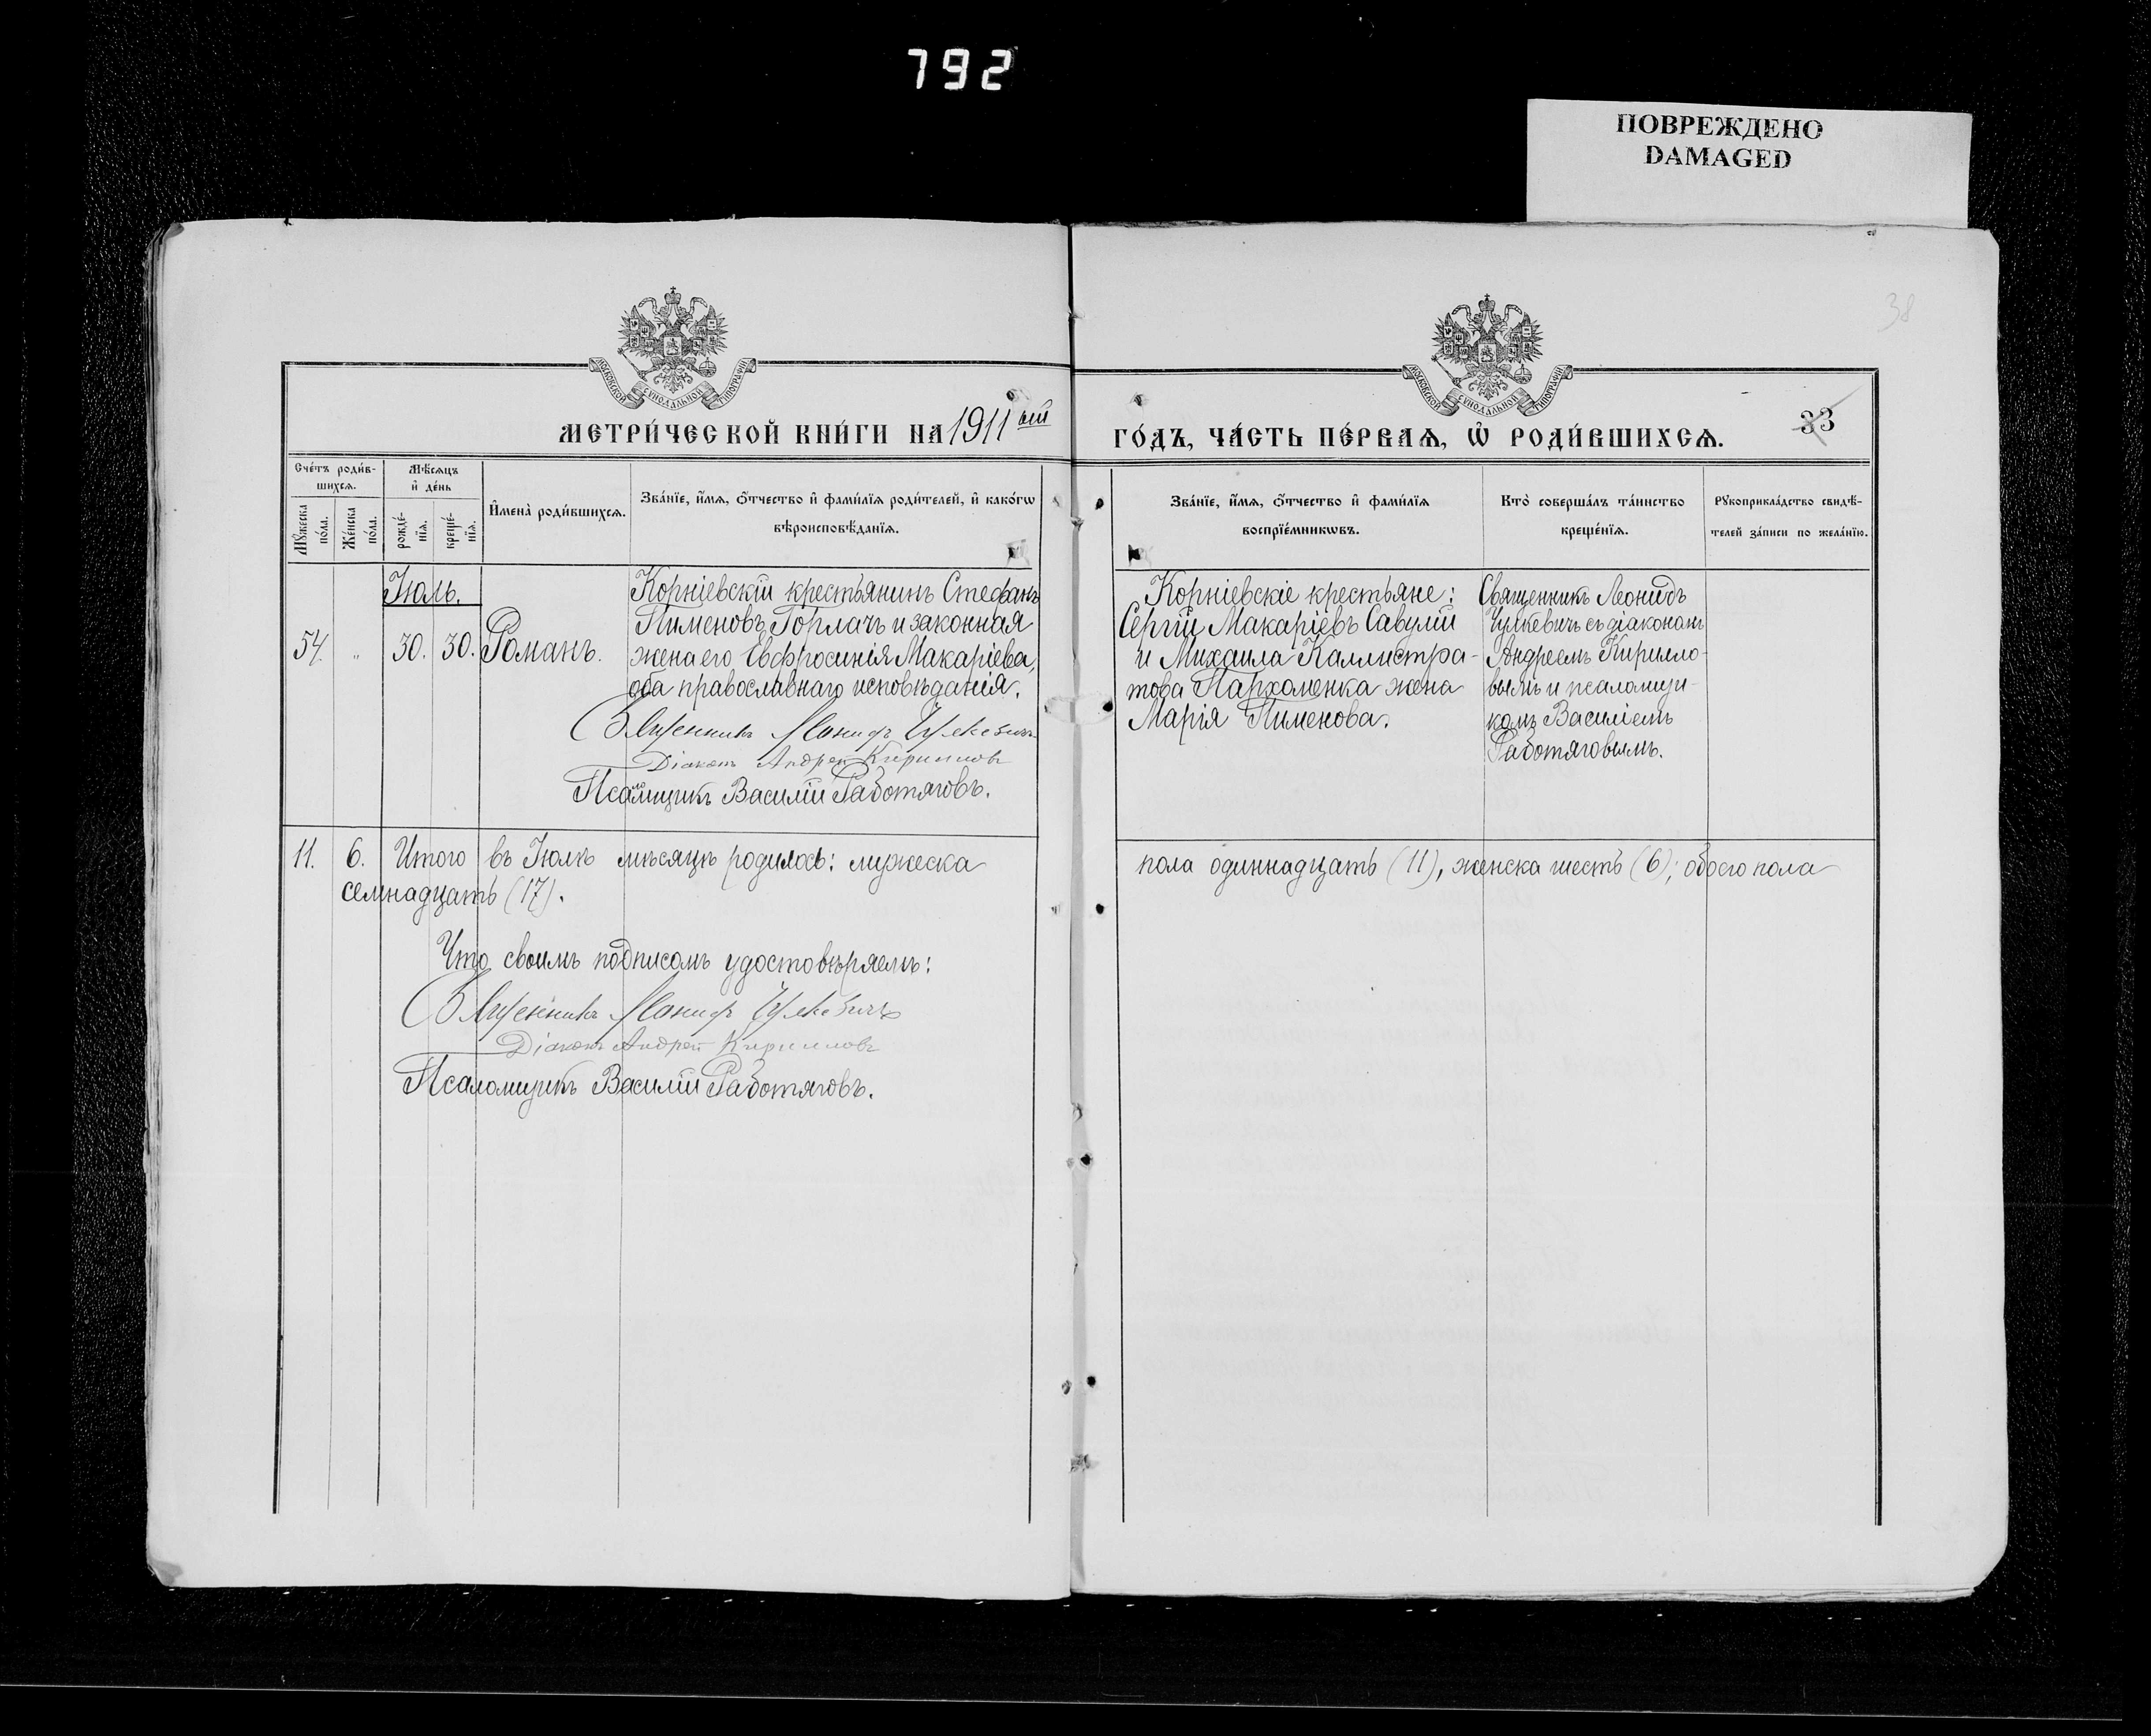 792
ПОВРЕЖДЕНО
DAMAGED
38
МОСКОВСКОЙ СУНОДАЛЬНОЙ ТИПОГРАФІИ
МОСКОВСКОЙ СУНОДАЛЬНОЙ ТИПОГРАФІИ
МЕТРИ́ЧЕСКОЙ КНИ́ГИ НА 1911 ый
ГО́ДЪ, ЧА́СТЬ ПЕ́РВАѦ, Ѡ҆ РОДИ́ВШИХСѦ.
33
Сче́тъ роди́в-
шихсѧ.
Мꙋ́жеска
по́ла.
Же́нска
по́ла.
Мѣ́сѧцъ
и҆ де́нь
рожде́-
нїѧ.
креще́-
нїѧ.
И҆мена̀ роди́вшихсѧ.
Зва́нїе, и҆́мѧ, ѻ҆́тчество и҆ фами́лїѧ роди́телей, и҆ како́гѡ
вѣроисповѣ́данїѧ.
Зва́нїе, и҆́мѧ, ѻ҆́тчество и҆ фами́лїѧ
воспрїе́мникѡвъ.
Кто̀ соверша́лъ та́инство
креще́нїѧ.
Рꙋкоприкла́дство свидѣ́-
телей за́писи по жела́нїю.
Іюль.
54. „ 30. 30. Романъ.
Корніевскій крестьянинъ Стефанъ
Пименовъ Горлачъ и законная
жена его Евфросинія Макаріева,
оба православнаго исповѣданія.
Священникъ Леонидъ Чулкевичъ
Діаконъ Андрей Кирилловъ
Псаломщикъ Василій Работяговъ.
Корніевскіе крестьяне:
Сергій Макаріевъ Савулій
и Михаила Каллистра-
това Пархоменка жена
Марія Пименова.
Священникъ Леонидъ
Чулкевичъ съ діакономъ
Андреемъ Кирилло-
вымъ и псаломщи-
комъ Василіемъ
Работяговымъ.
11. 6. Итого въ Іюлѣ мѣсяцѣ родилось: мужеска
пола одиннадцать (11), женска шесть (6); обоего пола
семнадцать (17).
Что своимъ подписомъ удостовѣряемъ:
Священникъ Леонидъ Чулкевичъ
Діаконъ Андрей Кирилловъ
Псаломщикъ Василій Работяговъ.